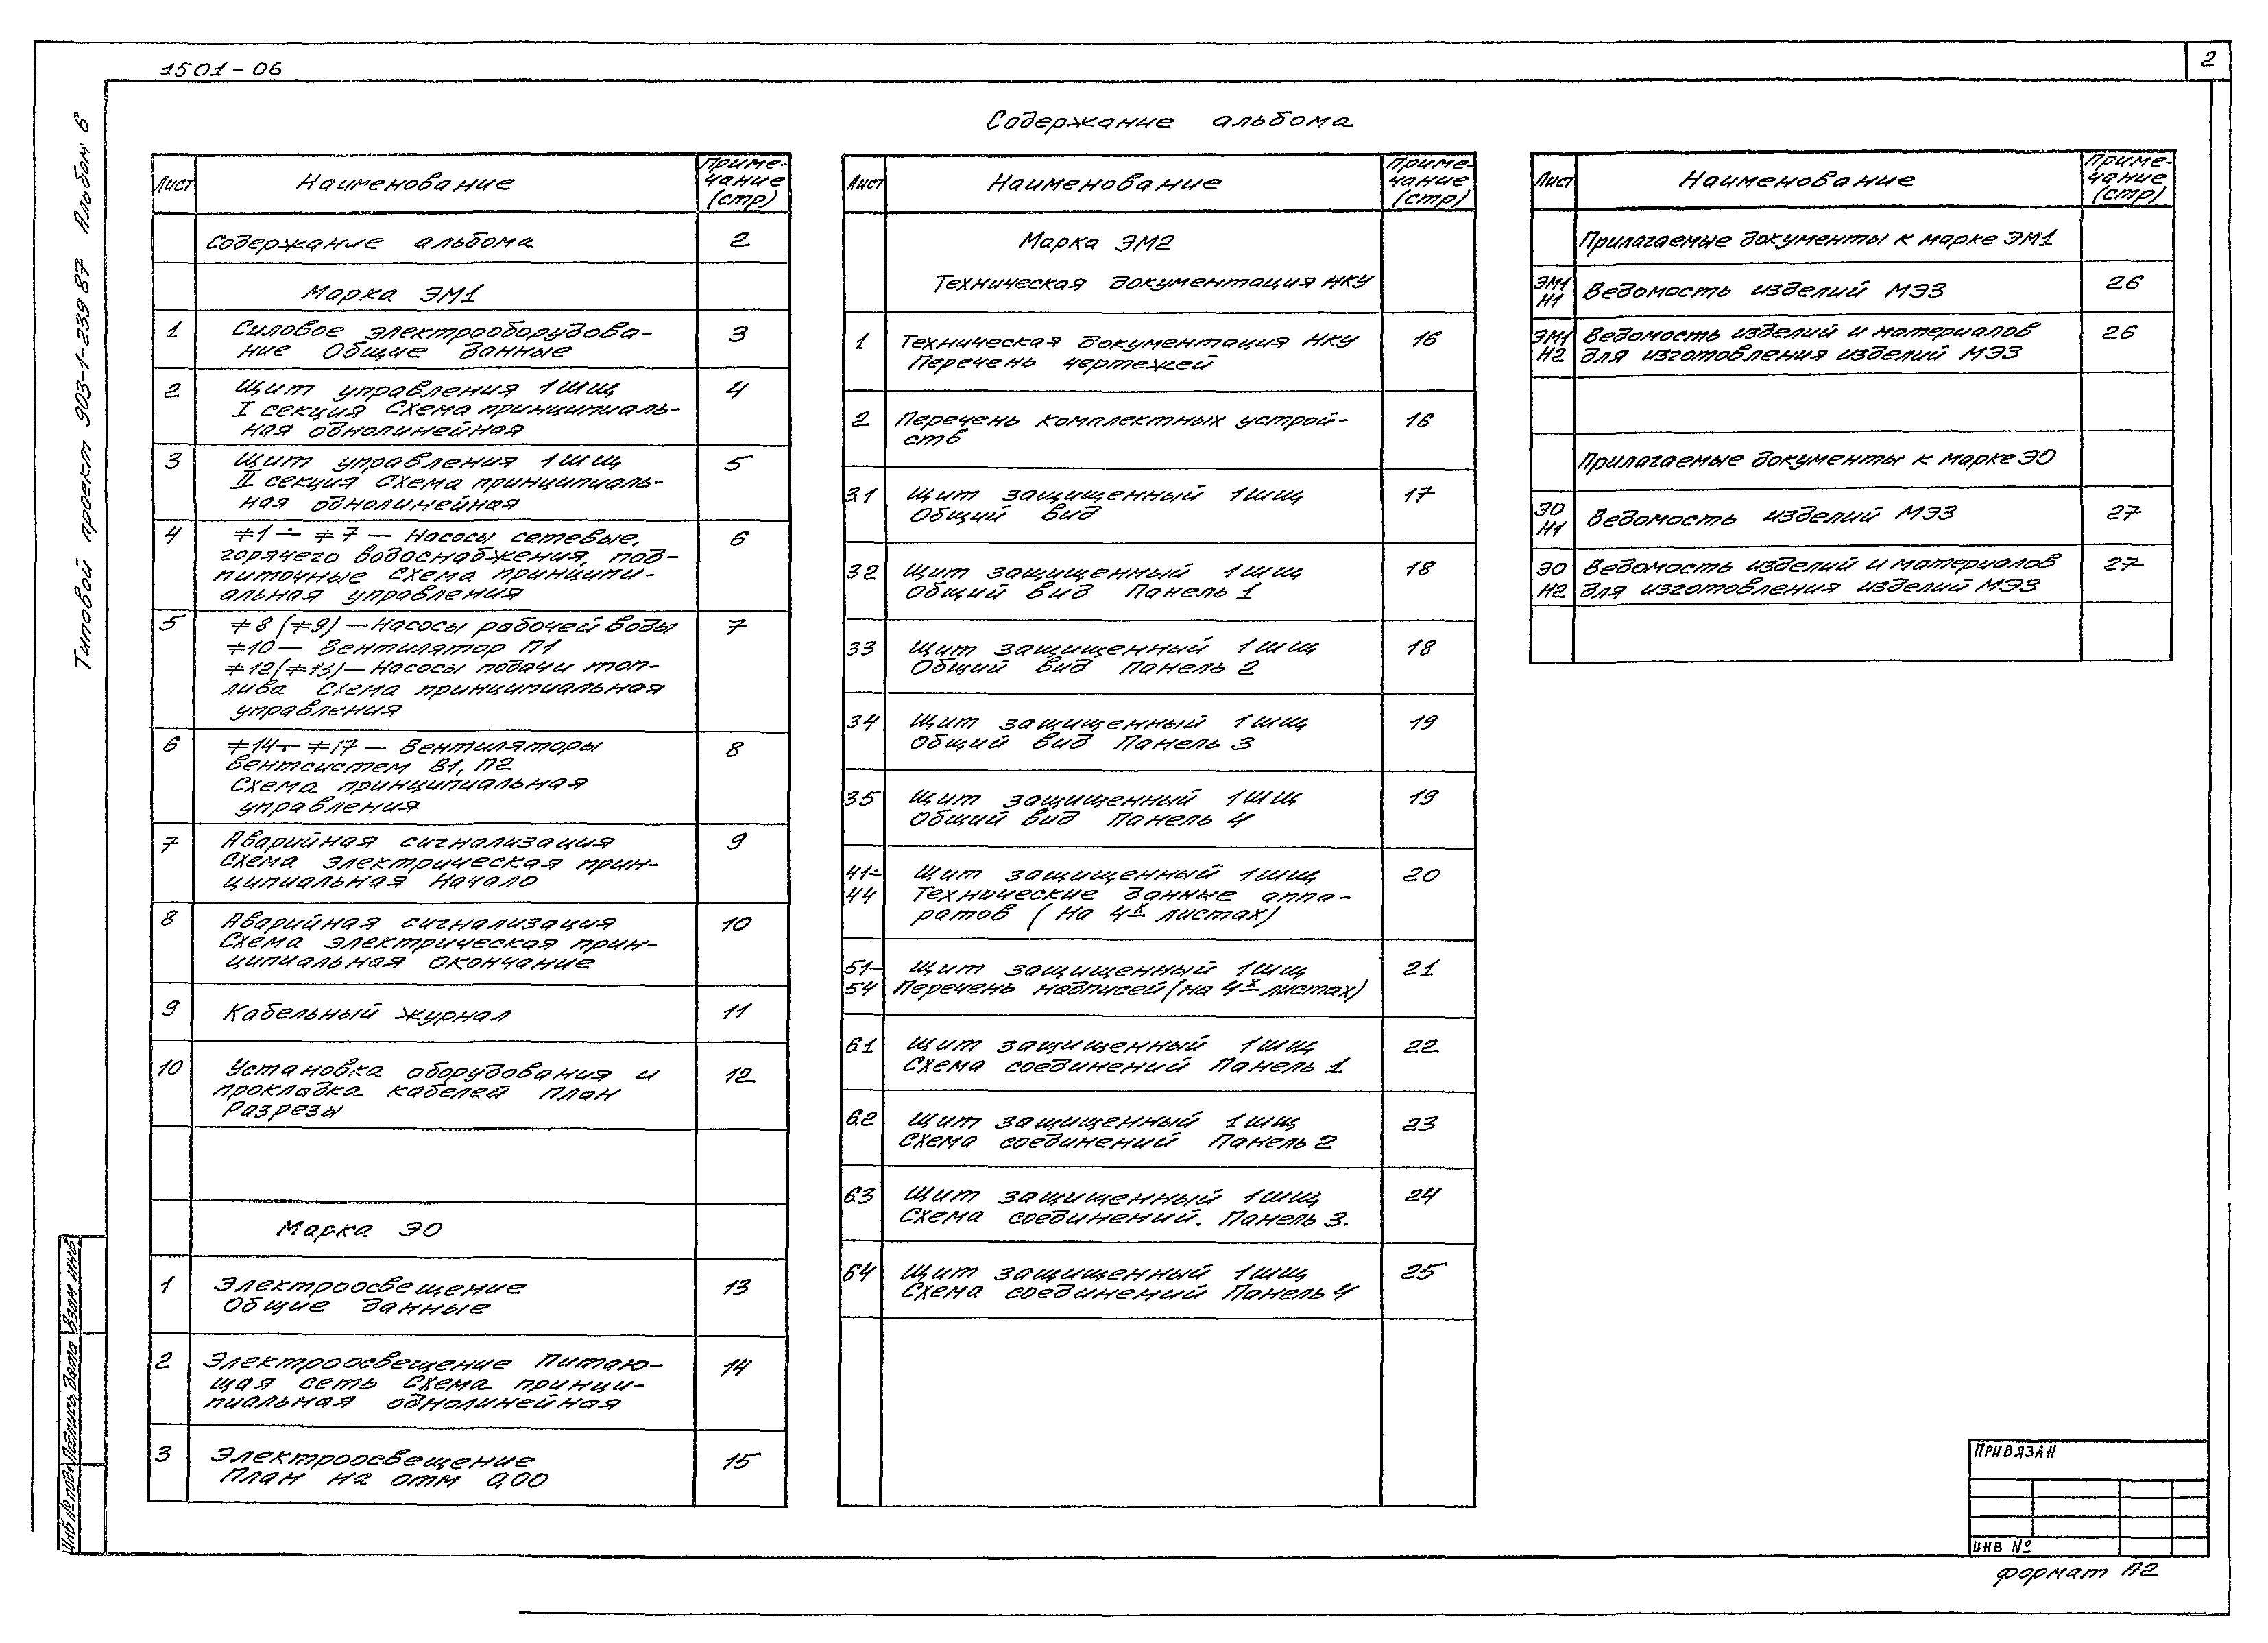 1501-06
2
Типовой проект 903-1-239 87 Альбом 6
Содержание альбома
Лист
Наименование
Приме-
чание
(стр)
Содержание альбома 2
Марка ЭМ1
1 Силовое электрооборудова- 3
ние Общие данные
2 Щит управления 1ШЩ 4
I секция Схема принципиаль-
ная однолинейная
3 Щит управления 1ШЩ 5
II секция Схема принципиаль-
ная однолинейная
4 ≠1÷≠7 — Насосы сетевые, 6
горячего водоснабжения, под-
питочные Схема принципи-
альная управления
5 ≠8 (≠9) — Насосы рабочей воды 7
≠10 — Вентилятор П1
≠12(≠13) — Насосы подачи топ-
лива Схема принципиальная
управления
6 ≠14÷≠17 — Вентиляторы 8
вентсистем В1, П2
Схема принципиальная
управления
7 Аварийная сигнализация 9
Схема электрическая прин-
ципиальная Начало
8 Аварийная сигнализация 10
Схема электрическая прин-
ципиальная окончание
9 Кабельный журнал 11
10 Установка оборудования и 12
прокладка кабелей план
Разрезы
Марка ЭО
1 Электроосвещение 13
Общие данные
2 Электроосвещение Питаю- 14
щая сеть Схема принци-
пиальная однолинейная
3 Электроосвещение 15
План на отм 0,00
Лист
Наименование
Приме-
чание
(стр)
Марка ЭМ2
Техническая документация НКУ
1 Техническая документация НКУ 16
Перечень чертежей
2 Перечень комплектных устрой- 16
ств
3.1 Щит защищенный 1ШЩ 17
Общий вид
32 Щит защищенный 1ШЩ 18
Общий вид Панель 1
33 Щит защищенный 1ШЩ 18
Общий вид Панель 2
34 Щит защищенный 1ШЩ 19
Общий вид Панель 3
35 Щит защищенный 1ШЩ 19
Общий вид Панель 4
41÷ Щит защищенный 1ШЩ 20
44 Технические данные аппа-
ратов (На 4х листах)
51- Щит защищенный 1ШЩ 21
54 Перечень надписей (на 4х листах)
6.1 Щит защищенный 1ШЩ 22
Схема соединений Панель 1
6.2 Щит защищенный 1ШЩ 23
Схема соединений Панель 2
6.3 Щит защищенный 1ШЩ 24
Схема соединений. Панель 3.
64 Щит защищенный 1ШЩ 25
Схема соединений Панель 4
Лист
Наименование
Приме-
чание
(стр)
Прилагаемые документы к марке ЭМ1
ЭМ1 Ведомость изделий МЭЗ 26
Н1
ЭМ1 Ведомость изделий и материалов 26
Н2 для изготовления изделий МЭЗ
Прилагаемые документы к марке ЭО
ЭО Ведомость изделий МЭЗ 27
Н1
ЭО Ведомость изделий и материалов 27
Н2 для изготовления изделий МЭЗ
Инв № подл Подпись, Дата Взам инв
ПРИВЯЗАН
ИНВ №
формат А2